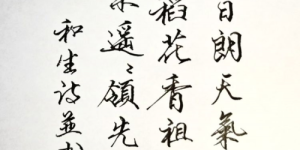 日朗天氣
稻花香祖
遥〻領先
和生詩並